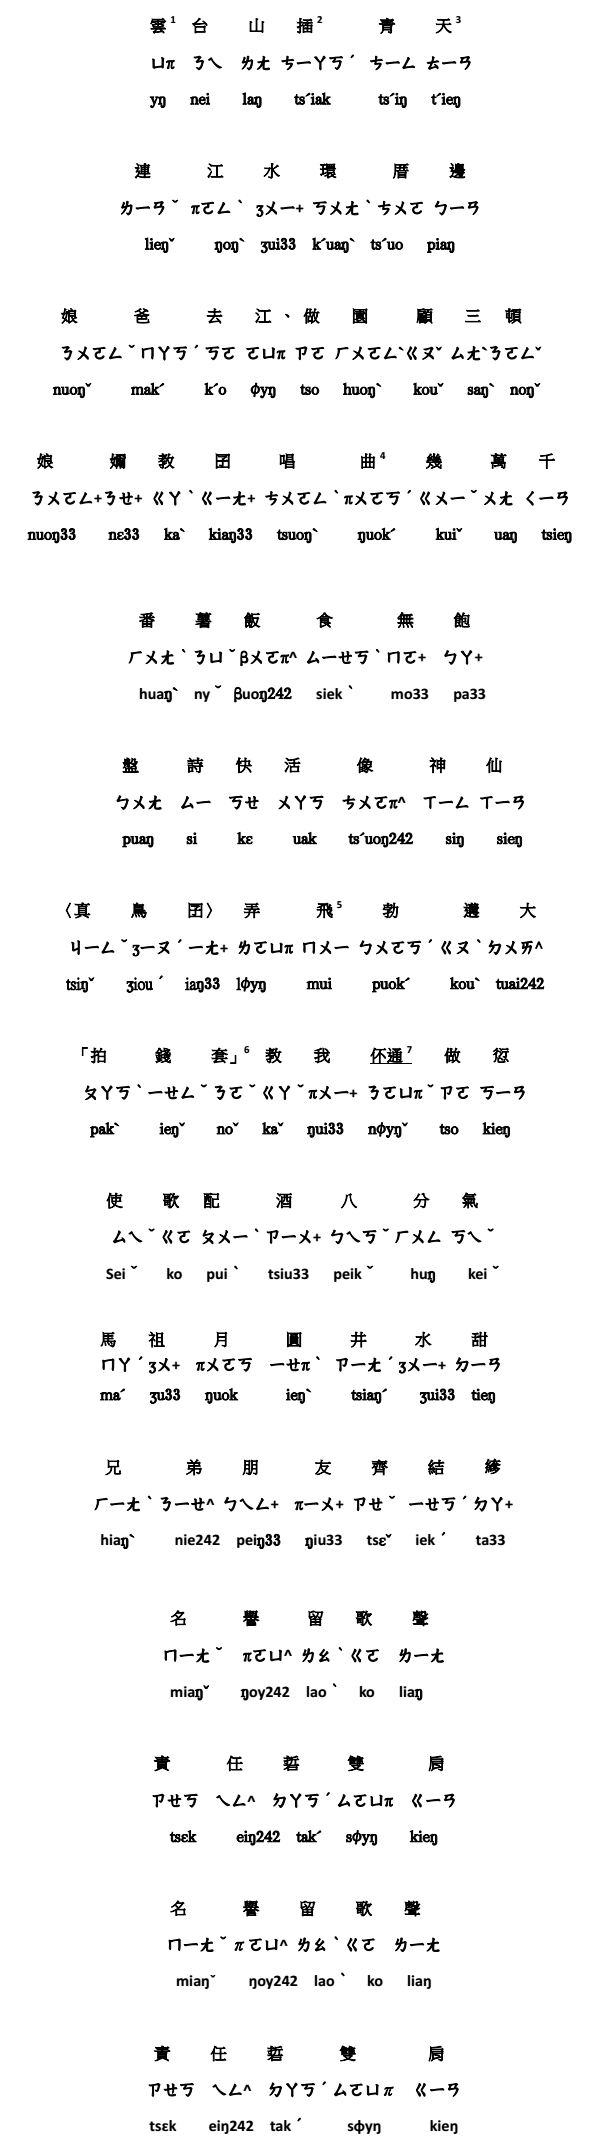 雲1 台 山 插2 青 天3
ㄩπ ㄋㄟ ㄌㄤ ㄘㄧㄚㄎˊ ㄘㄧㄥ ㄊㄧㄢ
yŋ nei laŋ ts´iak ts´iŋ t´ieŋ
連 江 水 環 厝 邊
ㄌㄧㄢˇ πㄛㄥˋ ʒㄨㄧ+ ㄎㄨㄤˋ ㄘㄨㄛ ㄅㄧㄢ
lieŋˇ ŋoŋˋ ʒui33 k´uaŋˋ ts´uo piaŋ
娘 爸 去 江、做 園 顧 三 頓
ㄋㄨㄛㄥˇㄇㄚㄎˊㄎㄛ ㄛㄩπ ㄗㄛ ㄏㄨㄛㄥˋㄍㄡˇ ㄙㄤˋㄋㄛㄥˇ
nuoŋˇ makˊ k´o ϕyŋ tso huoŋˋ kouˇ saŋˋ noŋˇ
娘 嬭 教 囝 唱 曲4 幾 萬 千
ㄋㄨㄛㄥ+ㄋㄝ+ ㄍㄚˋㄍㄧㄤ+ ㄘㄨㄛㄥˋπㄨㄛㄎˊㄍㄨㄧˇㄨㄤ ㄑㄧㄢ
nuoŋ33 nɛ33 kaˋ kiaŋ33 tsuoŋˋ ŋuokˊ kuiˇ uaŋ tsieŋ
番 薯 飯 食 無 飽
ㄏㄨㄤˋㄋㄩˇβㄨㄛπ^ ㄙㄧㄝㄎˋㄇㄛ+ ㄅㄚ+
huaŋˋ nyˇ βuoŋ242 siekˋ mo33 pa33
盤 詩 快 活 像 神 仙
ㄅㄨㄤ ㄙㄧ ㄎㄝ ㄨㄚㄎ ㄘㄨㄛπ^ ㄒㄧㄥ ㄒㄧㄢ
puaŋ si kɛ uak ts´uoŋ242 siŋ sieŋ
〈真 鳥 囝〉 弄 飛5 勃 遘 大
ㄐㄧㄥˇʒㄧㄡˊㄧㄤ+ ㄌㄛㄩπ ㄇㄨㄧ ㄅㄨㄛㄎˊㄍㄡˋㄉㄨㄞ^
tsiŋˇ ʒiouˊ iaŋ33 lϕyŋ mui puokˊ kouˋ tuai242
「拍 錢 套」6 教 我 伓通7 做 愆
ㄆㄚㄎˋㄧㄝㄥˇㄋㄛˇㄍㄚˇπㄨㄧ+ ㄋㄛㄩπˇㄗㄛ ㄎㄧㄢ
pakˋ ieŋˇ noˇ kaˇ ŋui33 nϕyŋˇ tso kieŋ
使 歌 配 酒 八 分 氣
ㄙㄟˇㄍㄛ ㄆㄨㄧˋㄗㄧㄨ+ ㄅㄟㄎˇㄏㄨㄥ ㄎㄟˇ
Seiˇ ko puiˋ tsiu33 peikˇ huŋ keiˇ
馬 祖 月 圓 井 水 甜
ㄇㄚˊʒㄨ+ πㄨㄛㄎ ㄧㄝπˋ ㄗㄧㄤˊʒㄨㄧ+ ㄉㄧㄢ
maˊ ʒu33 ŋuok ieŋˋ tsiaŋˊ ʒui33 tieŋ
兄 弟 朋 友 齊 結 縿
ㄏㄧㄤˋㄋㄧㄝ^ ㄅㄟㄥ+ πㄧㄨ+ ㄗㄝˇ ㄧㄝㄎˊㄉㄚ+
hiaŋˋ nie242 peiŋ33 ŋiu33 tsɛˇ iekˊ ta33
名 譽 留 歌 聲
ㄇㄧㄤˇ πㄛㄩ^ ㄌㄠˋㄍㄛ ㄌㄧㄤ
miaŋˇ ŋoy242 laoˋ ko liaŋ
責 任 硩 雙 肩
ㄗㄝㄎ ㄟㄥ^ ㄉㄚㄎˊㄙㄛㄩπ ㄍㄧㄢ
tsɛk eiŋ242 takˊ sϕyŋ kieŋ
名 譽 留 歌 聲
ㄇㄧㄤˇπㄛㄩ^ ㄌㄠˋㄍㄛ ㄌㄧㄤ
miaŋˇ ŋoy242 laoˋ ko liaŋ
責 任 硩 雙 肩
ㄗㄝㄎ ㄟㄥ^ ㄉㄚㄎˊㄙㄛㄩπ ㄍㄧㄢ
tsɛk eiŋ242 takˊ sϕyŋ kieŋ